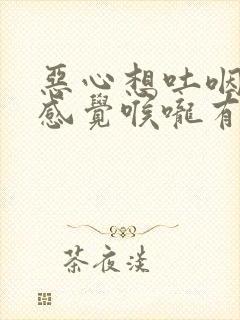 惡心想吐咽
感覺喉嚨有
茶夜淡